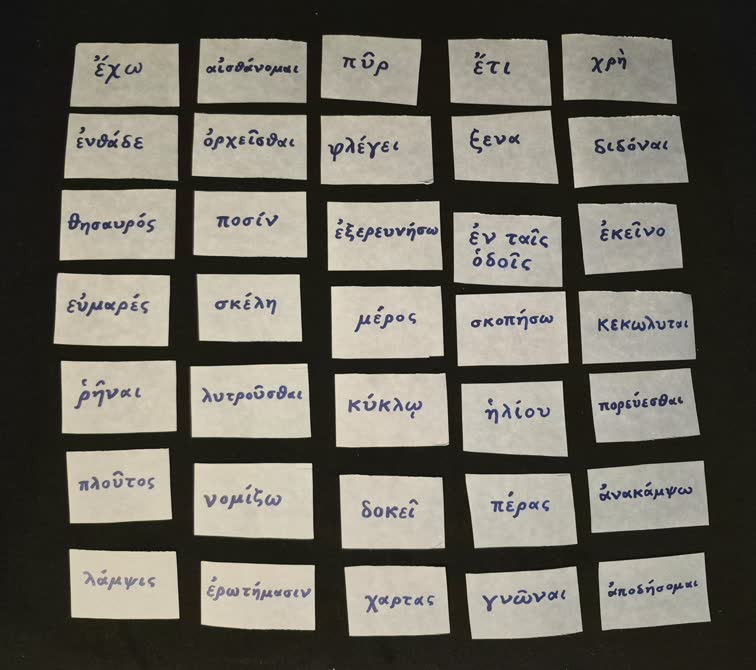 ἔχω
αἰσθάνομαι
πῦρ
ἔτι
χρὴ
ἐνθάδε
ὀρχεῖσθαι
φλέγει
ξενα
διδόναι
θησαυρός
ποσίν
ἐξερευνήσω
ἐν ταῖς
ὁδοῖς
ἐκεῖνο
εὐμαρές
σκέλη
μέρος
σκοπήσω
κεκωλυται
ῥῆναι
λυτροῦσθαι
κύκλῳ
ἡλίου
πορεύεσθαι
πλοῦτος
νομίζω
δοκεῖ
πέρας
ἀνακάμψω
λάμψις
ἐρωτήμασιν
χαρτας
γνῶναι
ἀποδήσομαι